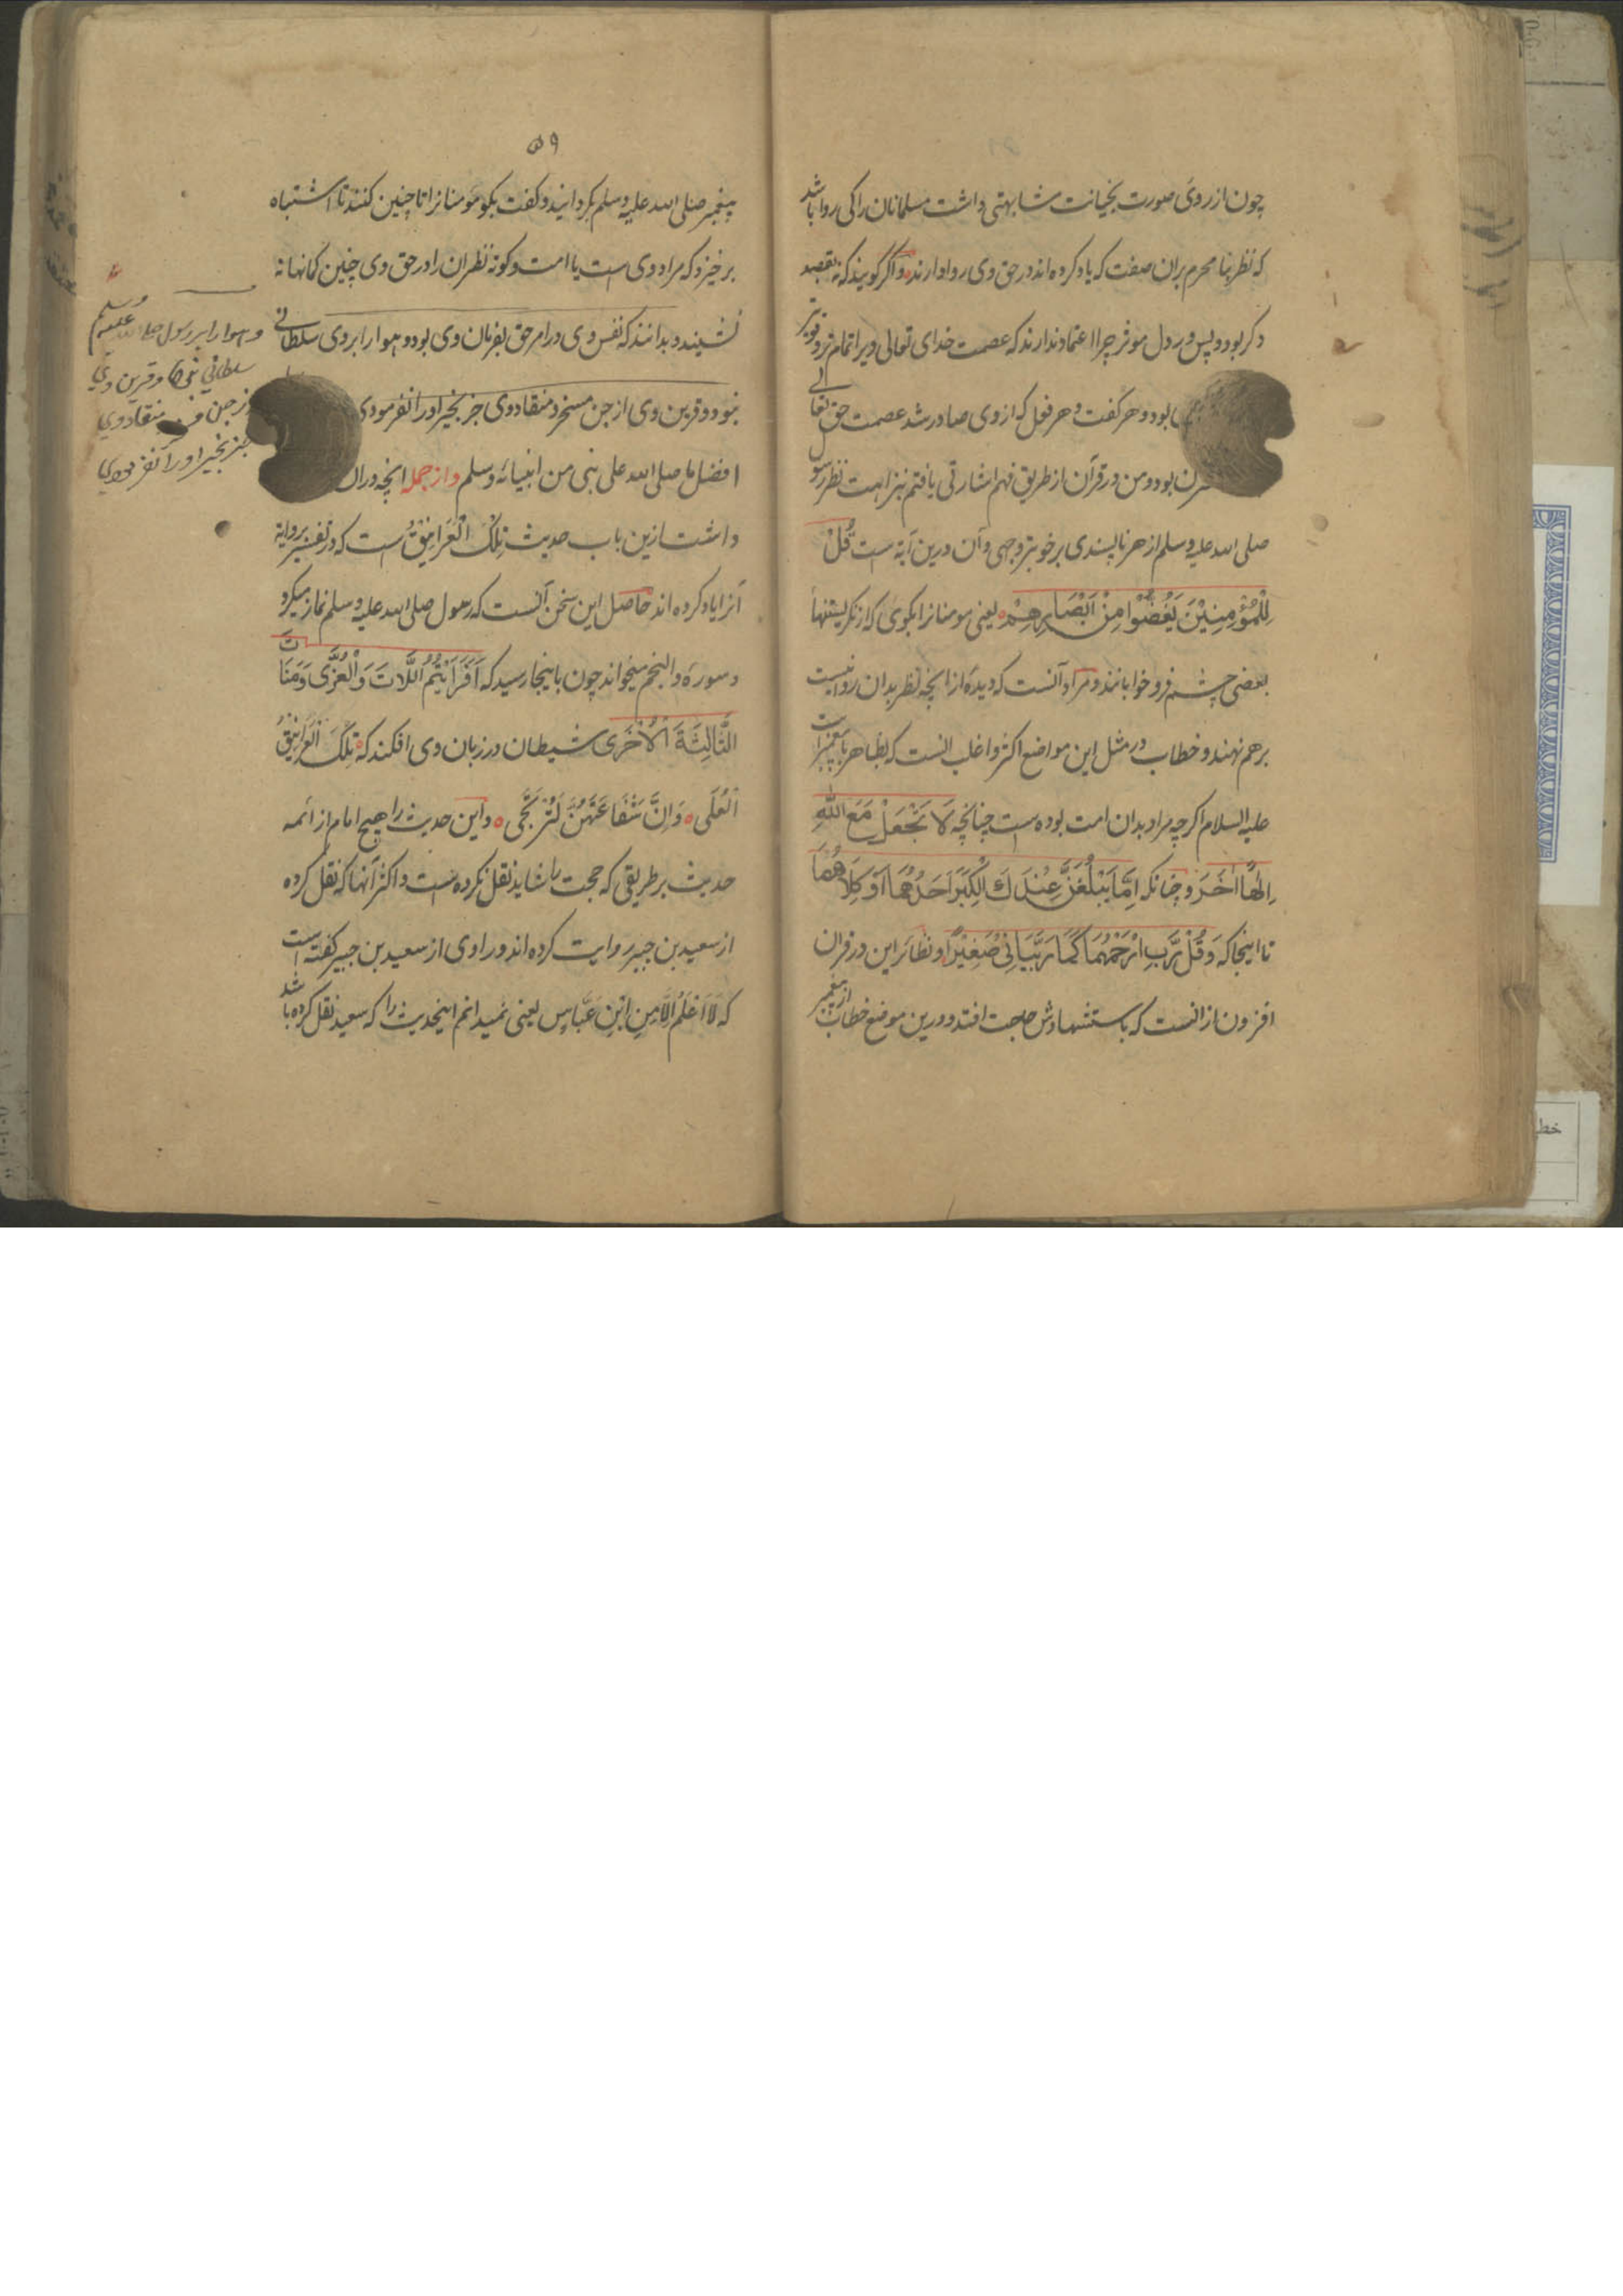 چون از روی صورت بخیانت مشابهتی داشت مسلمانان را کی روا باشد
که نظر بنا محرم بران صفت که یاد کرده اند در حق وی روا دارند و اگر گویند که نه بقصد
دکر بود و پس در دل موثر چرا اعتماد ندارند که عصمت خدای تعالی ویرا تمام تر و قویتر
بود و هر گفت و هر فعل که از وی صادر شد عصمت حق تعالی
بود و من در قرآن از طریق فهم اشارتی یافتم بنزاهت نظر رسول
صلی الله علیه وسلم از هر ناپسندی بر خوبتر وجهی و آن درین آیة است قُلْ
لِلْمُؤْمِنِیْنَ یَغُضُّوْا مِنْ اَبْصَارِهِمْ یعنی مومنانرا بکوی که از نکریستنها
بعضی چشم فرو خوابانند و مراد آنست که دیده از انچه نظر بدان روا نیست
بر هم نهند و خطاب در مثل این مواضع اکثر و اغلب انست که بظاهر با پیغمبر است
علیه السلام اکرچه مراد بدان امت بوده است چنانچه لَا تَجْعَلْ مَعَ اللّٰهِ
اِلٰهًا اٰخَرَ و چنانکه اِمَّا یَبْلُغَنَّ عِنْدَكَ الْکِبَرَ اَحَدُهُمَا اَوْ کِلَاهُمَا
تا اینجا که وَقُلْ رَّبِّ ارْحَمْهُمَا کَمَا رَبَّیَانِیْ صَغِیْرًا و نظائر این در قران
افزون از انست که باستشهادش حاجت افتد و درین موضع خطاب از پیغمبر
۵۹
پیغمبر صلی الله علیه وسلم بکردانید و کفت بکو مومنانرا تا چنین کنند تا اشتباه
بر خیزد که مراد وی است یا امت و کوته نظران را در حق وی چنین کمانها نه
نشیند و بدانند که نفس وی در امر حق بفرمان وی بود و هوا را بر وی سلطانی
نبود و قرین وی از جن مسخر و منقاد وی جز بخیر او را نفرمودی
افضل ما صلی الله علی نبی من انبیائه وسلم و از جمله انچه دران
داشت ازین باب حدیث تِلْكَ الْغَرَانِیْقُ است که در تفسیر بروایة
آنرا یاد کرده اند حاصل این سخن آنست که رسول صلی الله علیه وسلم نماز میکرد
و سورۀ والنجم میخواند چون باینجا رسید که اَفَرَاَیْتُمُ اللَّاتَ وَالْعُزّٰی وَمَنَاتَ
الثَّالِثَةَ الْاُخْرٰی شیطان در زبان وی افکند که تِلْكَ الْغَرَانِیْقُ
الْعُلٰی وَاِنَّ شَفَاعَتَهُنَّ لَتُرْتَجٰی و این حدیث را هیچ امام از ائمه
حدیث بر طریقی که حجت را شاید نقل نکرده است و اکثر آنها که نقل کرده
از سعید بن جبیر روایت کرده اند و راوی از سعید بن جبیر کفته است
که لَا اَعْلَمُ اِلَّا مِنِ ابْنِ عَبَّاسٍ یعنی نمیدانم اینحدیث را که سعید نقل کرده باشد
و هوا را بر رسول صلی الله علیه وسلم
سلطانی نبود و قرین وی
از جن منقاد وی
جز بخیر او را نفرمودی
خط